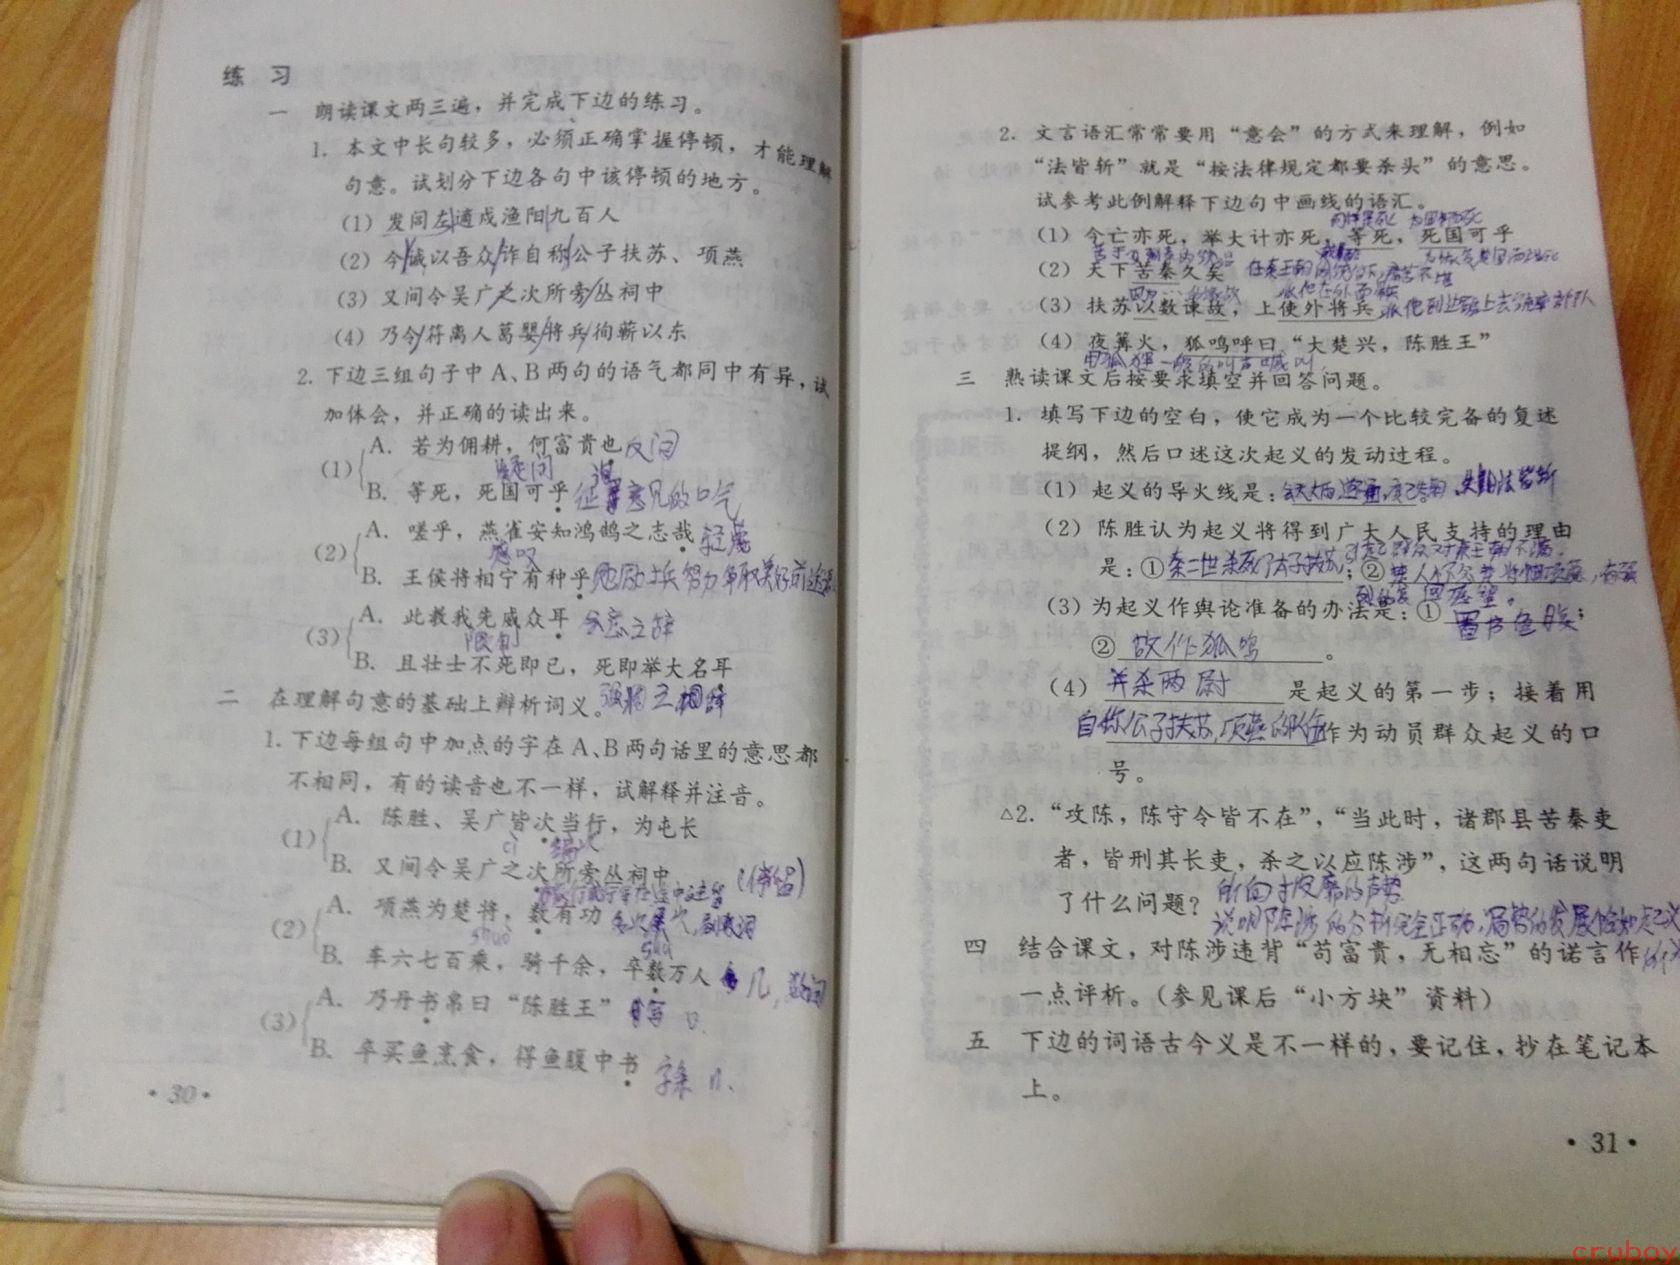 练 习
一 朗读课文两三遍，并完成下边的练习。
1. 本文中长句较多，必须正确掌握停顿，才能理解
句意。试划分下边各句中该停顿的地方。
(1) 发闾左適戍渔阳九百人
(2) 今诚以吾众诈自称公子扶苏、项燕
(3) 又间令吴广之次所旁丛祠中
(4) 乃令符离人葛婴将兵徇蕲以东
2. 下边三组句子中A、B两句的语气都同中有异，试
加体会，并正确的读出来。
(1) A. 若为佣耕，何富贵也 反问
疑问
B. 等死，死国可乎 征 意见的口气
(2) A. 嗟乎，燕雀安知鸿鹄之志哉 轻蔑
感叹
B. 王侯将相宁有种乎
(3) A. 此教我先威众耳
限制
B. 且壮士不死即已，死即举大名耳
二 在理解句意的基础上辨析词义。
1. 下边每组句中加点的字在A、B两句话里的意思都
不相同，有的读音也不一样，试解释并注音。
(1) A. 陈胜、吴广皆次当行，为屯长
cì 编次
B. 又间令吴广之次所旁丛祠中
(停留)
(2) A. 项燕为楚将，数有功
shuò
shù
B. 车六七百乘，骑千余，卒数万人 几，数词
(3) A. 乃丹书帛曰“陈胜王” 写
B. 卒买鱼烹食，得鱼腹中书 字条
·30·
2. 文言语汇常常要用“意会”的方式来理解，例如
“法皆斩”就是“按法律规定都要杀头”的意思。
试参考此例解释下边句中画线的语汇。
同样是死 为国而死
(1) 今亡亦死，举大计亦死，等死，死国可乎
(2) 天下苦秦久矣
派他在外面
(3) 扶苏以数谏故，上使外将兵
(4) 夜篝火，狐鸣呼曰“大楚兴，陈胜王”
三 熟读课文后按要求填空并回答问题。
1. 填写下边的空白，使它成为一个比较完备的复述
提纲，然后口述这次起义的发动过程。
(1) 起义的导火线是： 失期法皆斩
(2) 陈胜认为起义将得到广大人民支持的理由
是：① 秦二世杀死了太子扶苏；②
(3) 为起义作舆论准备的办法是：① 置书鱼腹；
② 故作狐鸣。
(4) 并杀两尉 是起义的第一步；接着用
自称公子扶苏，项燕 作为动员群众起义的口
号。
△2. “攻陈，陈守令皆不在”，“当此时，诸郡县苦秦吏
者，皆刑其长吏，杀之以应陈涉”，这两句话说明
了什么问题？ 所向披靡的声势
说明陈涉的分析完全正确，局势的发展恰如起义
四 结合课文，对陈涉违背“苟富贵，无相忘”的诺言作
一点评析。（参见课后“小方块”资料）
五 下边的词语古今义是不一样的，要记住，抄在笔记本
上。
·31·
cruboy